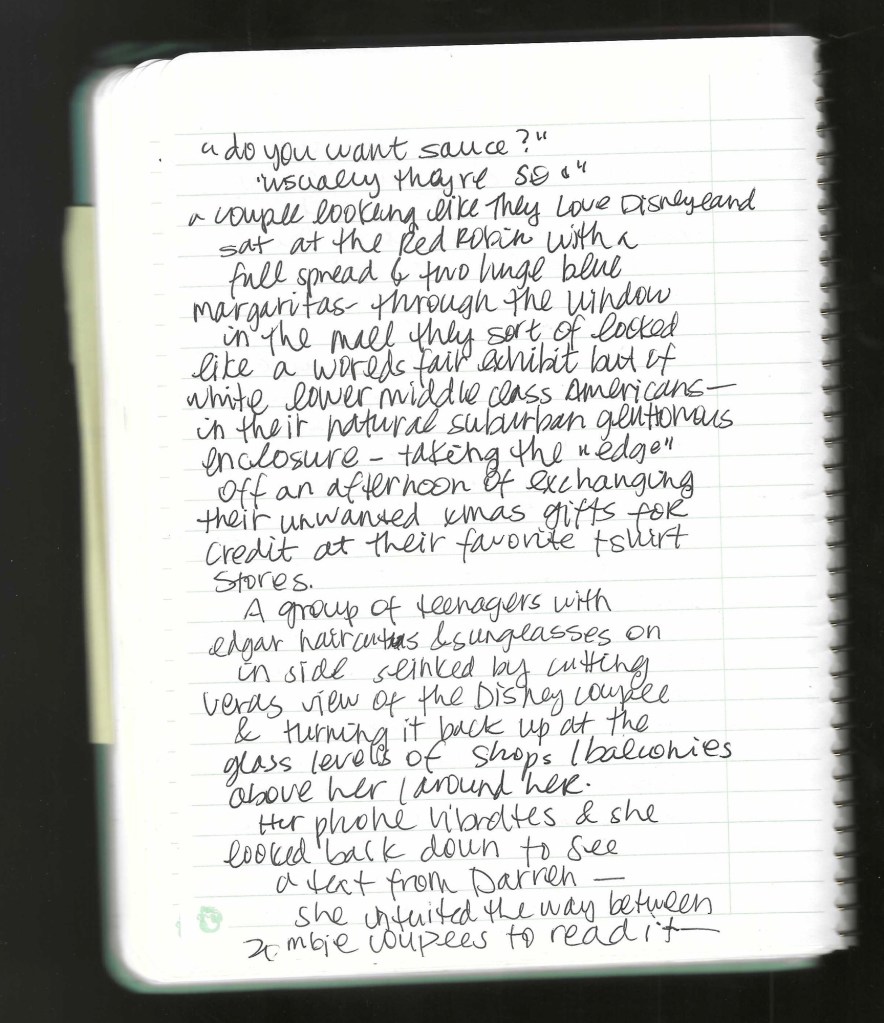 "do you want sauce?"
"usually they're so "
a couple looking like They Love Disneyland
sat at the Red Robin with a
full spread & two huge blue
margaritas- through the window
in the mall they sort of looked
like a worlds fair exhibit but of
white lower middle class Americans—
in their natural suburban gluttonous
enclosure - taking the "edge"
off an afternoon of exchanging
their unwanted xmas gifts for
credit at their favorite tshirt
stores.
A group of teenagers with
edgar haircuts & sunglasses on
in side slinked by cutting
veras view of the Disney couple
& turning it back up at the
glass levels of shops / balconies
above her / around her.
Her phone vibrates & she
looked back down to see
a text from Darren —
she intuited the way between
zombie couples to read it—